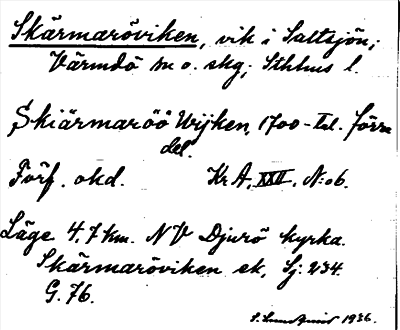 Skärmaröviken, vik i Saltsjön;
Värmdö sn o. skg; Sthlms l.
Skiärmaröö Wijken, 1700-tal. förra
del.
Förf. okd. Kr.A. XXII, N:o 6.
Läge 4,7 km. NV Djurö kyrka.
Skärmaröviken ek, Sj. 234.
G. 76.
1936.